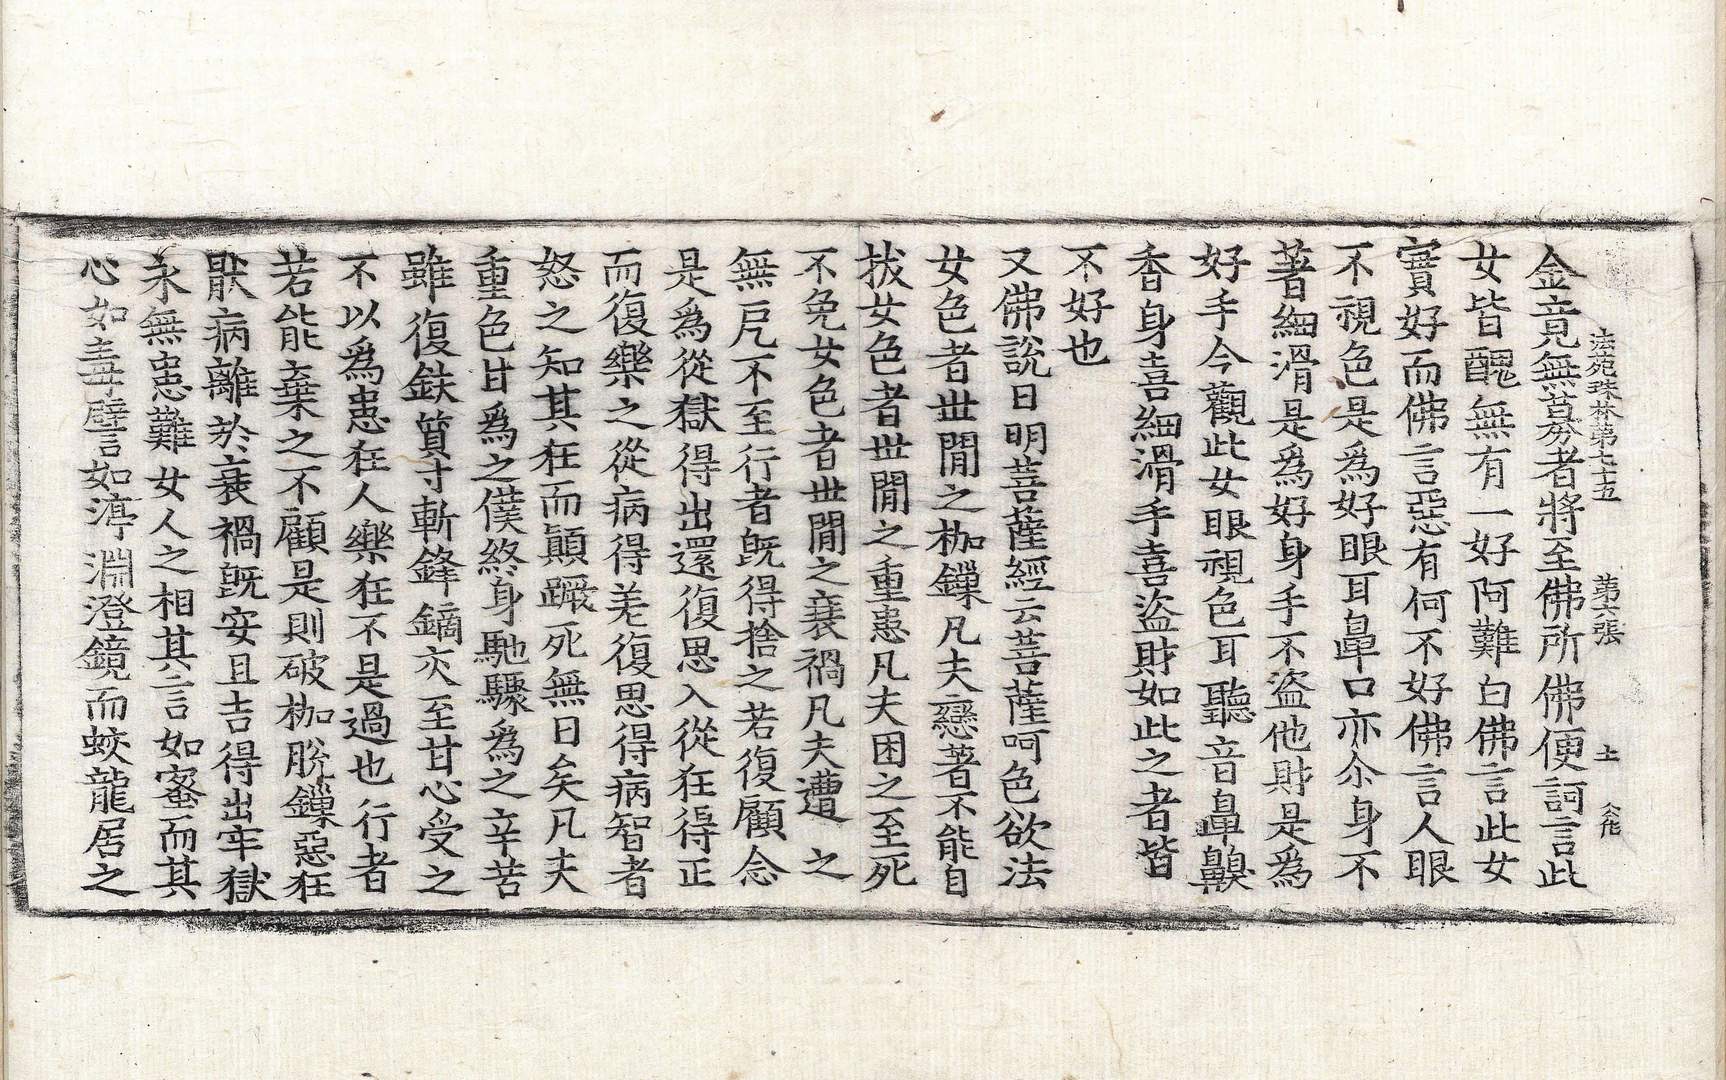 法苑珠林第七十五　第六張　土
金竟無募者將至佛所佛便訶言此
女皆醜無有一好阿難白佛言此女
實好而佛言惡有何不好佛言人眼
不視色是爲好眼耳鼻口亦尒身不
著細滑是爲好身手不盜他財是爲
好手今觀此女眼視色耳聽音鼻齅
香身喜細滑手喜盜財如此之者皆
不好也
又佛說日明菩薩經云菩薩呵色欲法
女色者世閒之枷鏁凡夫戀著不能自
拔女色者世閒之重患凡夫困之至死
不免女色者世閒之衰禍凡夫遭之
無戹不至行者旣得捨之若復顧念
是爲從獄得出還復思入從狂得正
而復樂之從病得差復思得病智者
怒之知其狂而顚蹶死無日矣凡夫
重色甘爲之僕終身馳驟爲之辛苦
雖復鈇質寸斬鋒鏑亦至甘心受之
不以爲患狂人樂狂不是過也行者
若能棄之不顧是則破枷脫鏁惡狂
猒病離於衰禍旣安且吉得出牢獄
永無患難女人之相其言如蜜而其
心如毒譬言如渟淵澄鏡而蛟龍居之